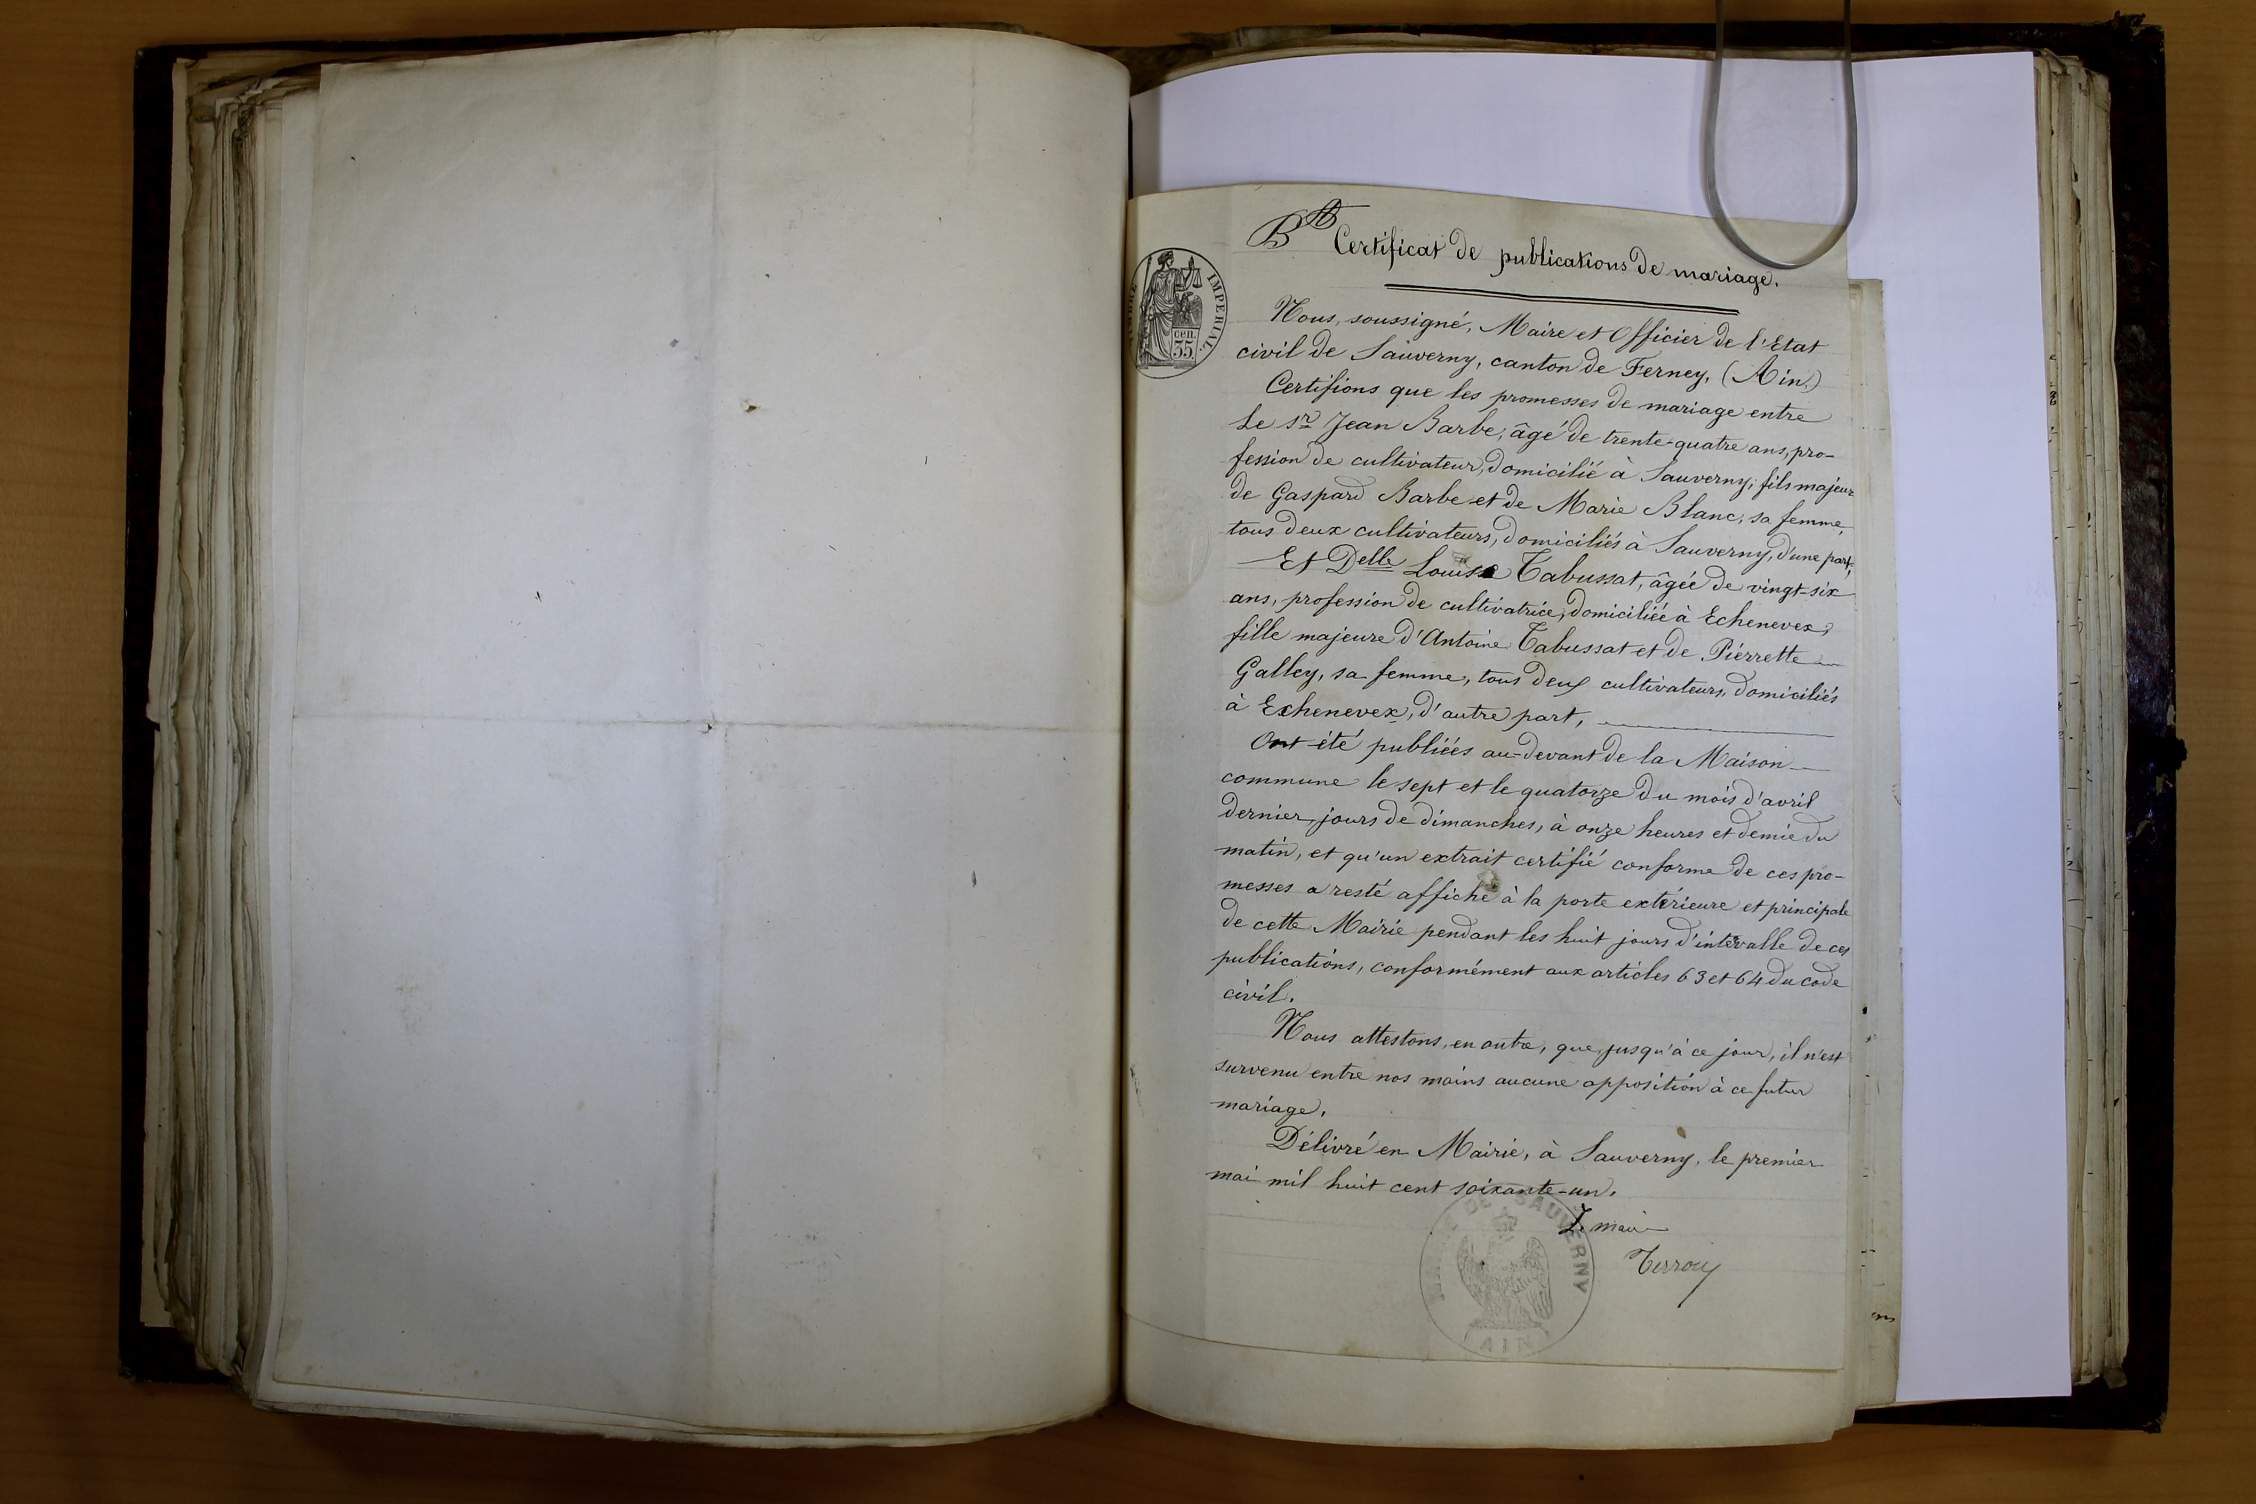 Certificat de publications de mariage.
TIMBRE IMPERIAL
35 cen.
Nous, soussigné, Maire et Officier de l'Etat
civil de Sauverny, canton de Ferney, (Ain,)
Certifions que les promesses de mariage entre
Le Sr Jean Barbe, âgé de trente-quatre ans, pro-
fession de cultivateur, domicilié à Sauverny, fils majeur
de Gaspard Barbe et de Marie Blanc, sa femme,
tous deux cultivateurs, domiciliés à Sauverny, d'une part,
Et Delle Louise Tabussat, âgée de vingt-six
ans, profession de cultivatrice, domiciliée à Echenevex,
fille majeure d'Antoine Tabussat et de Pierrette
Galley, sa femme, tous deux cultivateurs, domiciliés
à Echenevex, d'autre part,
Ont été publiées au-devant de la Maison
commune le sept et le quatorze du mois d'avril
dernier, jours de dimanches, à onze heures et demie du
matin, et qu'un extrait certifié conforme de ces pro-
messes a resté affiché à la porte extérieure et principale
de cette Mairie pendant les huit jours d'intervalle de ces
publications, conformément aux articles 63 et 64 du code
civil.
Nous attestons, en outre, que, jusqu'à ce jour, il n'est
survenu entre nos mains aucune opposition à ce futur
mariage.
Délivré en Mairie, à Sauverny, le premier
mai mil huit cent soixante-un.
Le maire
MAIRIE DE SAUVERNY
(AIN)